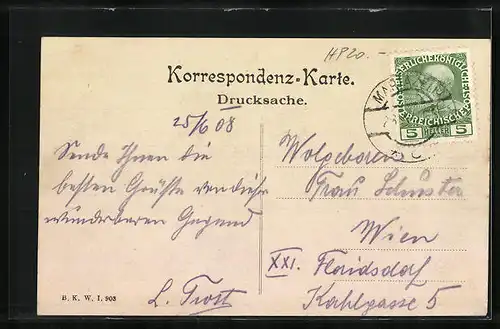 HP20.-
Korrespondenz-Karte.
Drucksache.
KAISERLICHE KÖNIGLICHE
ÖSTERREICHISCHE
5 HELLER 5
25/6 08
Sende Ihnen die
besten Grüße von dieser
wunderbaren Gegend
L. Trost
Wolgeboren
Frau Schuster
Wien
XXI. Floridsdorf
Kahlgasse 5
B. K. W. I. 903